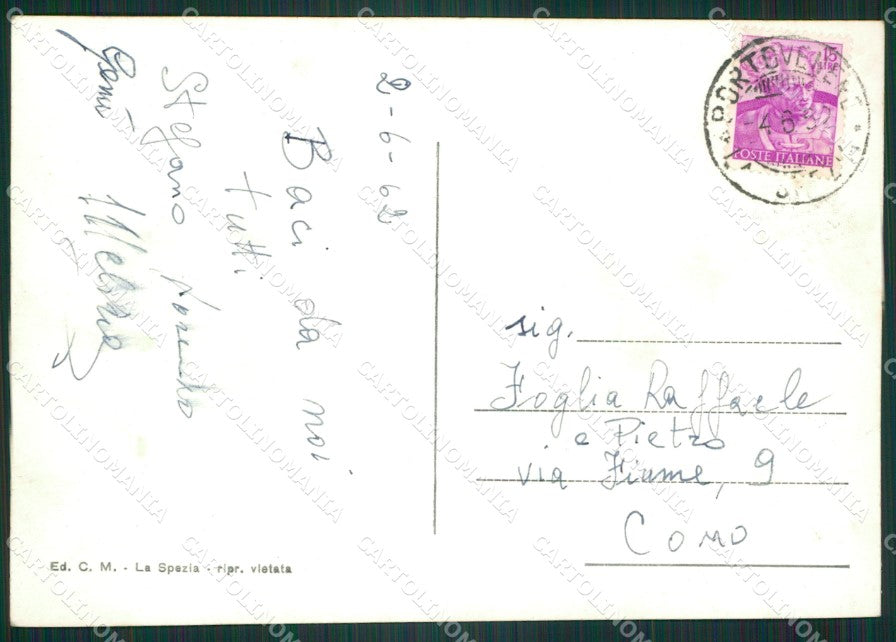 2-6-62
Baci da noi
tutti
Stefano Lorenzo
sig.
Foglia Raffaele
e Pietro
via Fiume, 9
Como
15
LIRE
POSTE ITALIANE
PORTOVENERE
4.6.62
Ed. C. M. - La Spezia - ripr. vietata
CARTOLINOMANIA